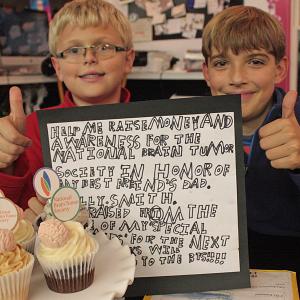 HELP ME RAISE MONEY AND
AWARENESS FOR THE
NATIONAL BRAIN TUMOR
SOCIETY IN HONOR OF
MY BEST FRIEND'S DAD,
LLY SMITH.
RAISED FROM THE
OF MY SPECIAL
FOR THE NEXT
WILL
TO THE BTS!!!!